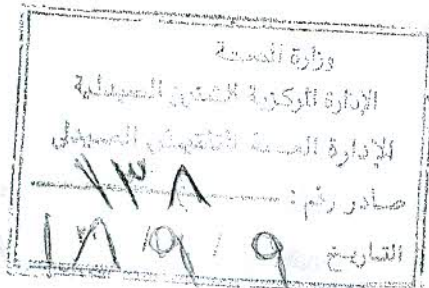 وزارة الصحة
الإدارة المركزية للشئون الصيدلية
الإدارة العامة للتفتيش الصيدلي
صادر رقم : ١٣٨
التاريخ ٩ / ٩ / ١٨